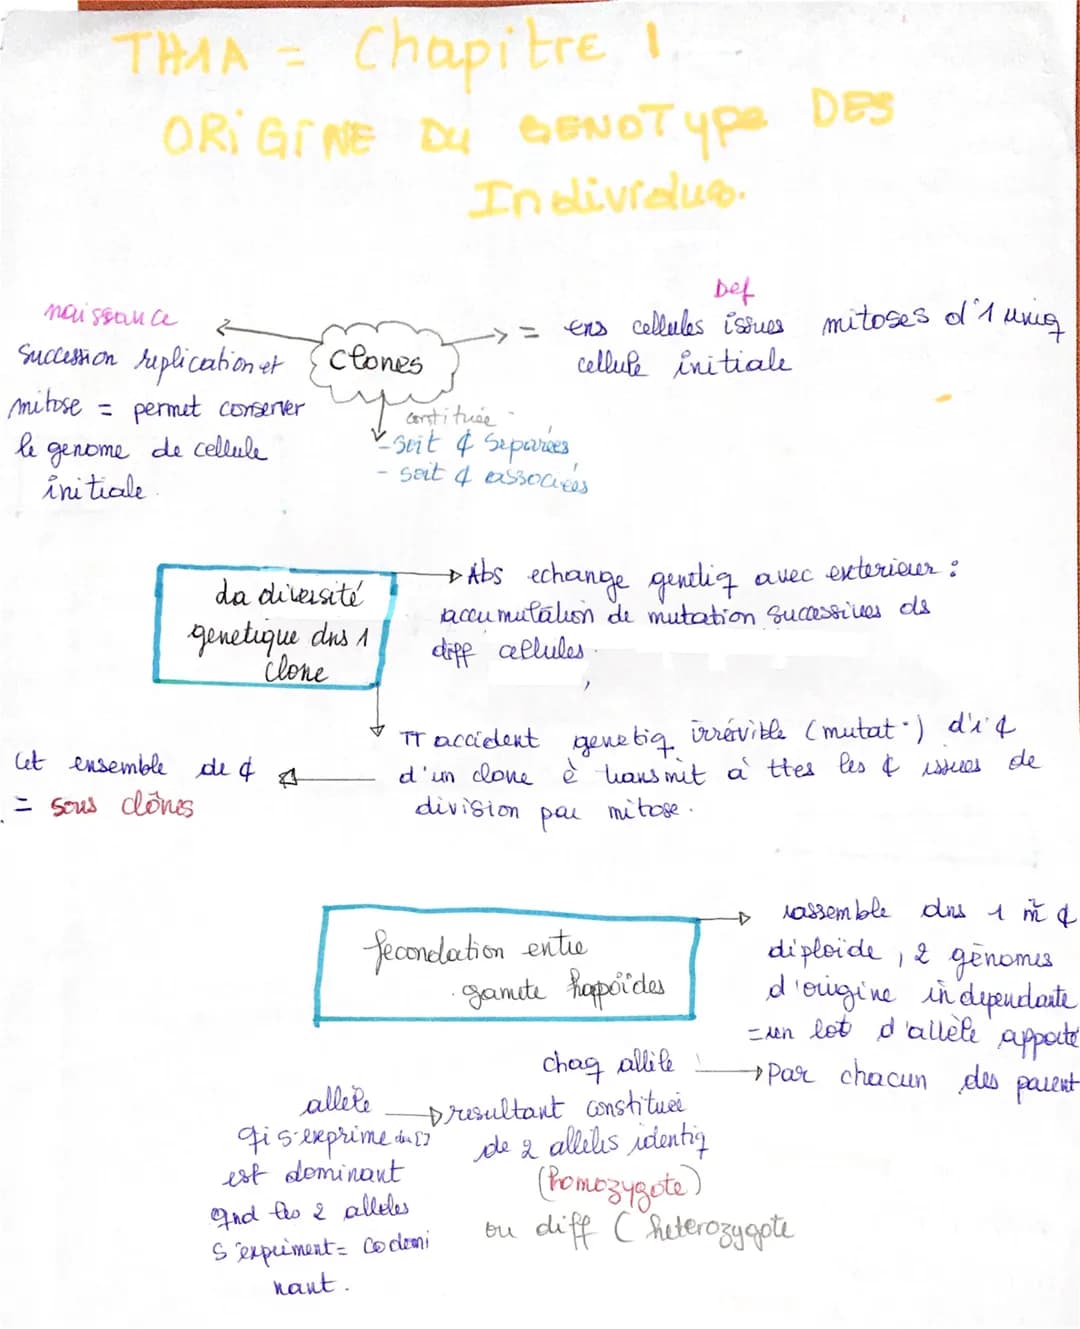 TH1A = Chapitre 1
ORiGiNE DU GENOTYPE DES
Individus.
naissance
Succession replication et
mitose = permet conserver
le genome de cellule
initiale.
Clones
Def
= ens cellules issues mitoses d'1 uniq
cellule initiale
constituée
- Soit ¢ Séparées
- soit ¢ associées
La diversité
genetique dns 1
clone
Abs echange genetiq avec exterieur :
accumulation de mutation successives ds
diff cellules.
TT accident genetiq irrévible (mutat°) d'1 ¢
d'un clone è transmit à ttes les ¢ issues de
division par mitose.
Cet ensemble de ¢
= sous clônes
fecondation entre
gamete hapoïdes
rassemble dns 1 m̃ ¢
diploïde, 2 génomes
d'origine indépendante
= un lot d'allèle apporté
Par chacun des parent
chaq allèle
resultant constituée
de 2 allèles identiq
(homozygote)
ou diff ( heterozygote
allele
qi s'exprime
est dominant
qnd les 2 alleles
s'expriment = codomi
nant.